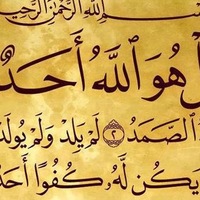 ـم اللَّهِ الرَّحْمَنِ الرَّحِيمِ
هُوَ اللَّهُ أَحَدٌ
الصَّمَدُ ٢ لَمْ يَلِدْ وَلَمْ يُولَدْ
يَكُن لَّهُ كُفُوًا أَحَدٌ